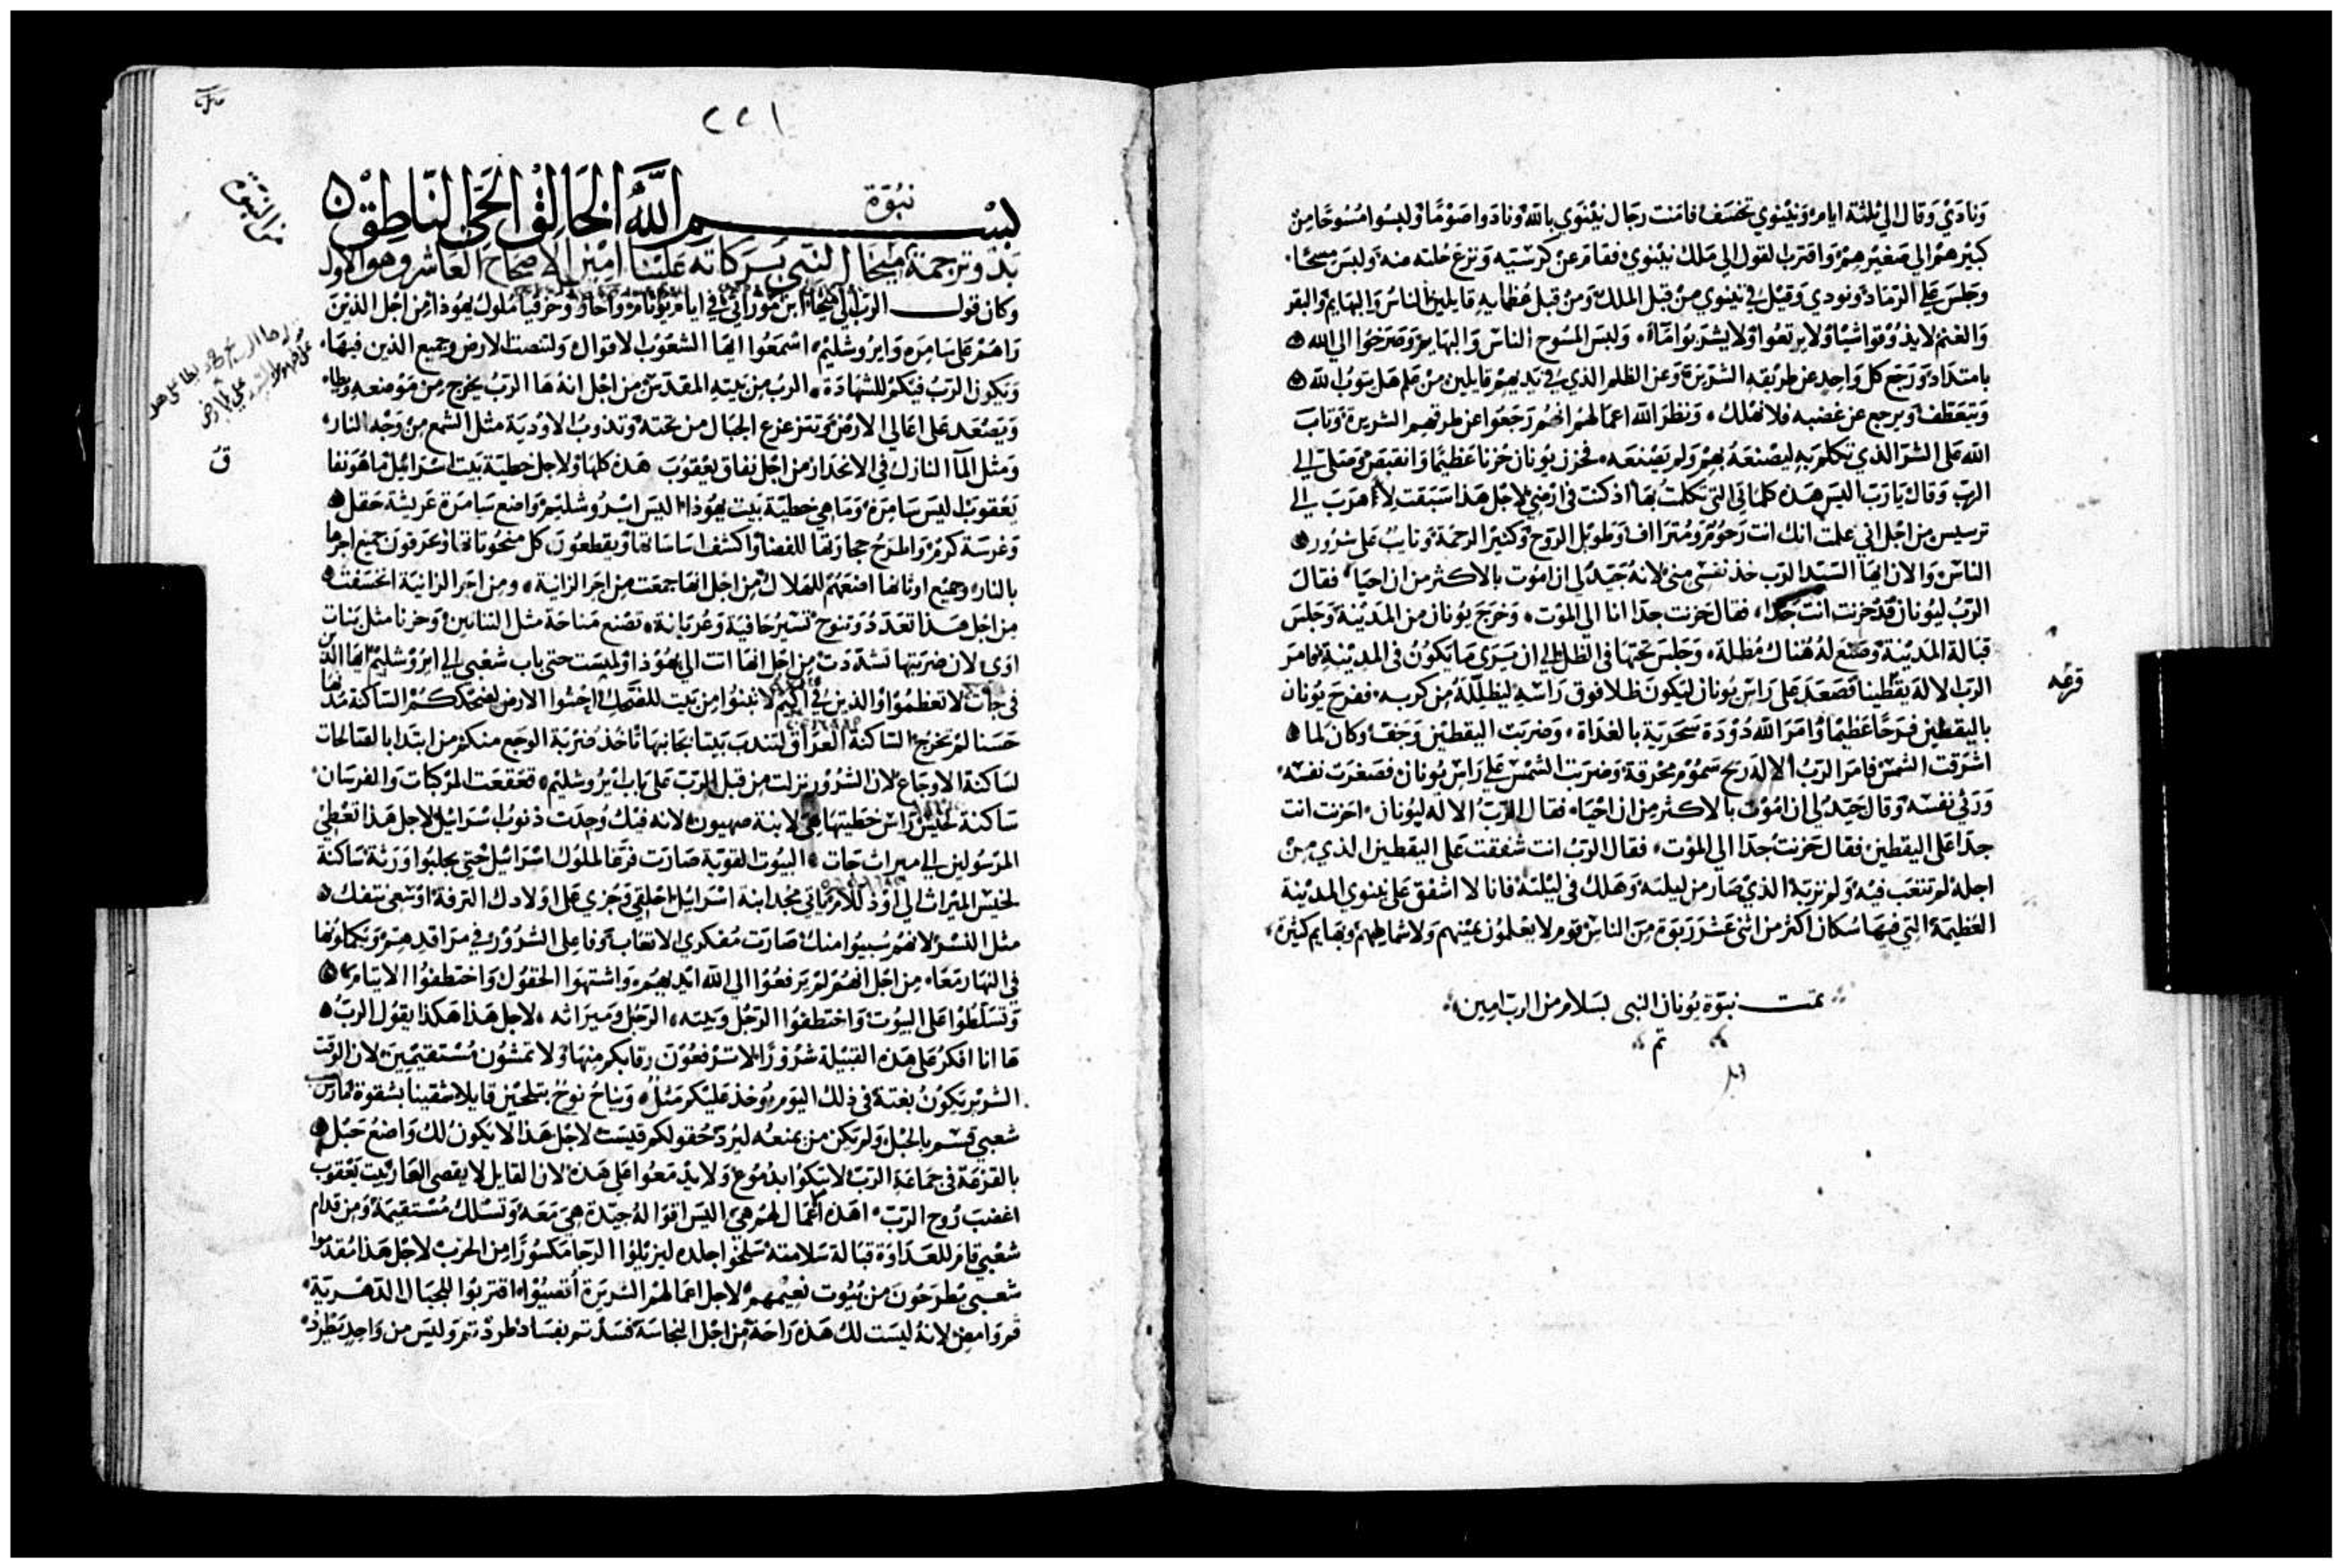 ونادي وقال الي ثلثة ايام ونينوي تخسف فامنت رجال نينوي بالله ونادوا صومًا ولبسوا مسوحًا من
كبيرهم الي صغيرهم واقترب القول الي ملك نينوي فقام عن كرسيه ونزع حلته عنه ولبس مسحًا
وجلس علي الرماد ونودي وقيل في نينوي من قبل الملك ومن قبل عظمايه قايلين الناس والبهايم والبقر
والغنم لا يذوقوا شيًا ولا يرتعوا ولا يشربوا مآء ولبس المسوح الناس والبهايم وصرخوا الي الله
بامتداد ورجع كل واحد عن طريقه الشريرة وعن الظلم الذي في يديهم قايلين من علم هل يتوب الله
ويتعطف ويرجع عن غضبه فلا نهلك ونظر الله اعمالهم انهم رجعوا عن طرقهم الشريرة وتاب
الله علي الشر الذي تكلم به ليصنعه بهم ولم يصنعه فحزن يونان حزنا عظيما وانقبض وصلي الي
الرب وقال يارب اليس هذه كلماتي التي تكلمت بها اذ كنت في ارضي لاجل هذا سبقت لأهرب الي
ترسيس من اجل اني علمت انك انت رحوم ومتراف وطويل الروح وكثير الرحمة وتايب علي شرور
الناس والان ايها السيد الرب خذ نفسي مني لانه جيد لي ان اموت بالاكثر من ان احيا فقال
الرب ليونان قد حزنت انت جدا فقال حزنت جدا انا الي الموت وخرج يونان من المدينة وجلس
قبالة المدينة وصنع له هناك مظلة وجلس تحتها في الظل الي ان يري ما يكون في المدينة فامر
الرب الاله يقطينا فصعد علي راس يونان ليكون ظلا فوق راسه ليظلله من كربه ففرح يونان
باليقطين فرحًا عظيمًا وامر الله دودة سحرية بالغداة وضربت اليقطين وجف وكان لما
اشرقت الشمس فامر الرب الاله ريح سموم محرقة وضربت الشمس علي راس يونان فصغرت نفسه
وقال جيد لي ان اموت بالاكثر من ان احيا فقال الرب الاله ليونان احزنت انت
جدا علي اليقطين فقال حزنت جدا الي الموت فقال الرب انت شفقت علي اليقطين الذي من
اجله لم تتعب فيه ولم تربه الذي صار من ليلته وهلك في ليلته فانا لا اشفق علي نينوي المدينة
العظيمة التي فيها سكان اكثر من اثني عشر ربوة من الناس قوم لا يعلمون يمينهم ولا شمالهم وبهايم كثيرة
تمت نبوة يونان النبي بسلام من الرب امين
تم
قرعه
٢٢١
نبوة
بسم الله الخالق الحي الناطق
بدو ترجمة ميخا النبي بركاته علينا امين الاصحاح العاشر وهو الاول
وكان قول الرب الي ميخا ابن موراثي في ايام يوثام واحاز وحزقيا ملوك يهوذا من اجل الذين
راهم علي سامره وايروشليم اسمعوا ايها الشعوب الاقوال ولتنصت الارض وجميع الذين فيها
ويكون الرب فيكم للشهادة الرب من بيته المقدس من اجل انه ها الرب يخرج من موضعه
ويصعد علي اعالي الارض وتتزعزع الجبال من تحته وتذوب الاودية مثل الشمع من وجه النار
ومثل المآ النازل في الانحدار من اجل نفاق يعقوب هذه كلها ولاجل خطية بيت اسرائيل ما هو نفاق
يعقوب اليس سامره وما هي خطية بيت يهوذا اليس ايروشليم واضع سامرة عريشة حقل
وغرسة كرم واطرح حجارتها للفضا واكشف اساساتها ويقطعون كل منحوتاتها ويحرقون جميع اجرها
بالنار وجميع اوثانها اضعهم للهلاك من اجل انها جمعت من اجر الزانية ومن اجر الزانية
من اجل هذا تعدد وتنوح تسير حافية وعريانة تصنع مناحة مثل التنانين وحزنا مثل بنات
اوي لان ضربتها تشددت من اجل انها اتت الي يهوذا ولمست حتي باب شعبي الي ايروشليم
في جات لا تعظموا والذين في اكيم لا تبنوا من بيت للضحك
حسنا لم تخرج الساكنة لتندب بيتا بجانبها تاخذ ضربة الوجع منكم من ابتدا بالصالحات
لساكنة الاوجاع لان الشرور نزلت من قبل الرب علي باب ايروشليم قعقعت المركبات والفرسان
ساكنة لخيس راس خطيتها هي لابنة صهيون لانه فيك وجدت ذنوب اسرائيل لاجل هذا تعطي
المرسولين الي ميراث جات البيوت صارت لملوك اسرائيل حتي يجلبوا ورثة ساكنة
لخيس الميراث الي مجد ابنة اسرائيل احلقي وجزي علي اولادك الترفة
مثل النسر لانهم سبيوا منك صارت مفكري الاتعاب وفاعلي الشرور في مراقدهم ويكملونها
في النهار معًا من اجل انهم لم يرفعوا الي الله ايديهم واشتهوا الحقول واختطفوا الايتام
وتسلطوا علي البيوت واختطفوا الرجل وبيته الرجل وميراثه لاجل هذا هكذا يقول الرب
ها انا افكر علي هذه القبيلة شرورًا لا ترفعون رقابكم منها ولا تمشون مستقيمين لان الوقت
الشرير يكون بغتة في ذلك اليوم يوخذ عليكم مثل ويناح نوح بتلحين قايلا شقينا بشقوة
شعبي قسم بالحبل ولم يكن من يمنعه ليرد حقولكم قسمت لاجل هذا لا يكون لك واضع حبل
بالقرعة في جماعة الرب لا تبكوا بدموع ولا يدمعوا علي هذه لان القايل بيت يعقوب
اغضب روح الرب اهذه اعمال لهم هي اليس اقواله جيدة هي معه وتسلك مستقيمة ومن قدام
شعبي قام للعداوة قبالة سلامته سلخوا جلده ليزيلوا الرجا مكسورًا من الحرب لاجل هذا
شعبي يطرحون من بيوت نعيمهم لاجل اعمالهم الشريرة اقتربوا للجبال الدهرية
قم وامض لانه ليست لك هذه راحة من اجل النجاسة فسدتم بفساد طردتم وليس من واحد يطرد